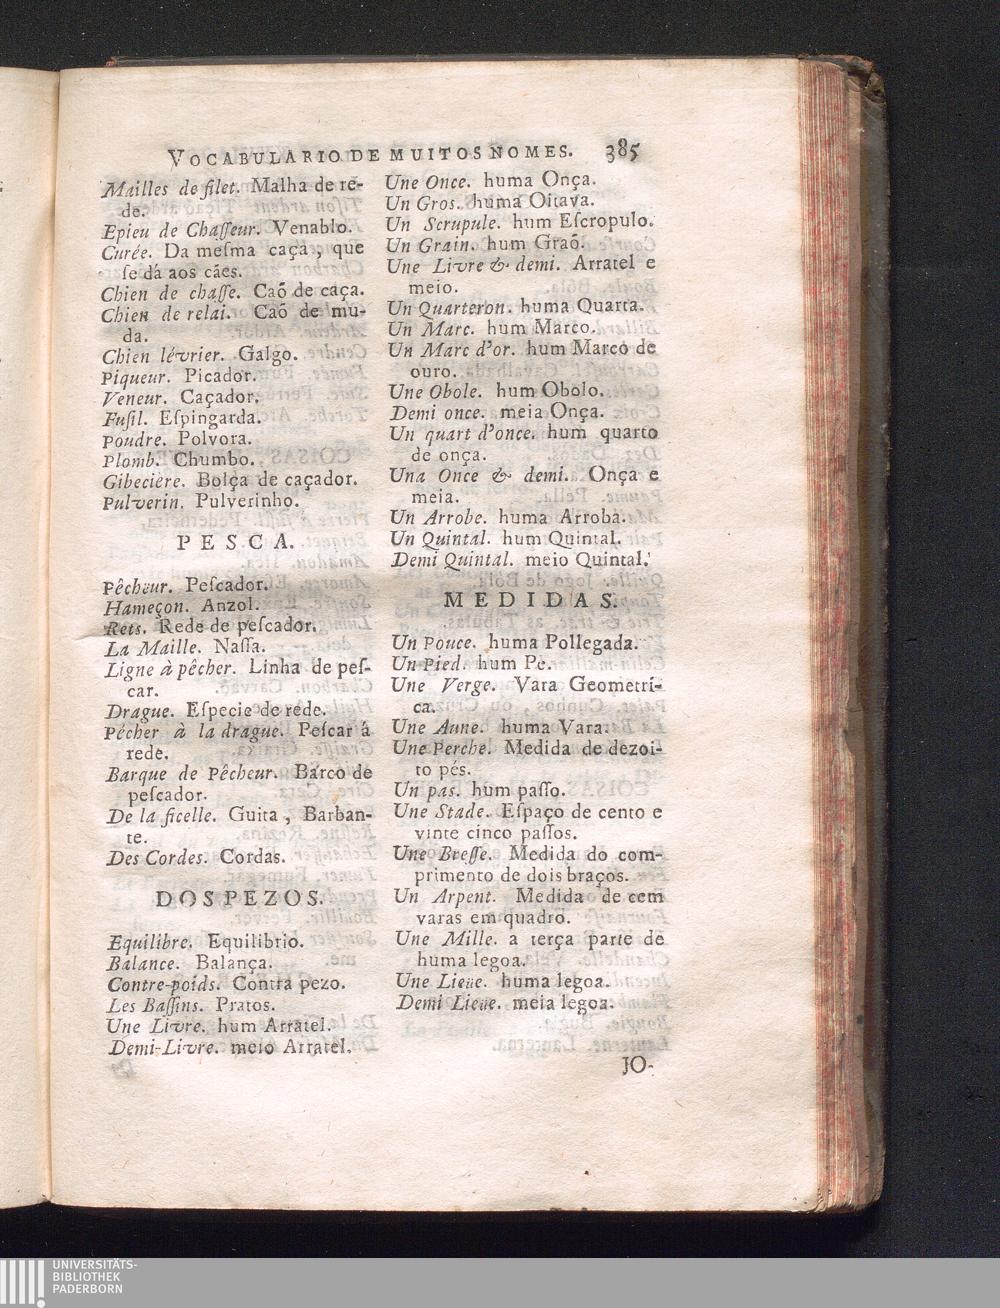 VOCABULARIO DE MUITOS NOMES. 385
Mailles de filet. Malha de re-
de.
Epieu de Chaſſeur. Venablo.
Curée. Da meſma caça, que
ſe dá aos cães.
Chien de chaſſe. Caõ de caça.
Chien de relai. Caõ de mu-
da.
Chien lévrier. Galgo.
Piqueur. Picador.
Veneur. Caçador.
Fuſil. Eſpingarda.
Poudre. Polvora.
Plomb. Chumbo.
Gibeciere. Bolça de caçador.
Pulverin. Pulverinho.
PESCA.
Pêcheur. Peſcador.
Hameçon. Anzol.
Rets. Rede de peſcador.
La Maille. Naſſa.
Ligne à pêcher. Linha de peſ-
car.
Drague. Eſpecie de rede.
Pécher à la drague. Peſcar á
rede.
Barque de Pêcheur. Barco de
peſcador.
De la ficelle. Guita, Barban-
te.
Des Cordes. Cordas.
DOS PEZOS.
Equilibre. Equilibrio.
Balance. Balança.
Contre-poids. Contra pezo.
Les Baſſins. Pratos.
Une Livre. hum Arratel.
Demi-Livre. meio Arratel.
Une Once. huma Onça.
Un Gros. huma Oitava.
Un Scrupule. hum Eſcropulo.
Un Grain. hum Graõ.
Une Livre & demi. Arratel e
meio.
Un Quarteron. huma Quarta.
Un Marc. hum Marco.
Un Marc d'or. hum Marco de
ouro.
Une Obole. hum Obolo.
Demi once. meia Onça.
Un quart d'once. hum quarto
de onça.
Una Once & demi. Onça e
meia.
Un Arrobe. huma Arroba.
Un Quintal. hum Quintal.
Demi Quintal. meio Quintal.
MEDIDAS.
Un Pouce. huma Pollegada.
Un Pied. hum Pe.
Une Verge. Vara Geometri-
ca.
Une Aune. huma Vara.
Une Perche. Medida de dezoi-
to pés.
Un pas. hum paſſo.
Une Stade. Eſpaço de cento e
vinte cinco paſſos.
Une Breſſe. Medida do com-
primento de dois braços.
Un Arpent. Medida de cem
varas em quadro.
Une Mille. a terça parte de
huma legoa.
Une Lieue. huma legoa.
Demi Lieue. meia legoa.
JO-
UNIVERSITÄTS-
BIBLIOTHEK
PADERBORN